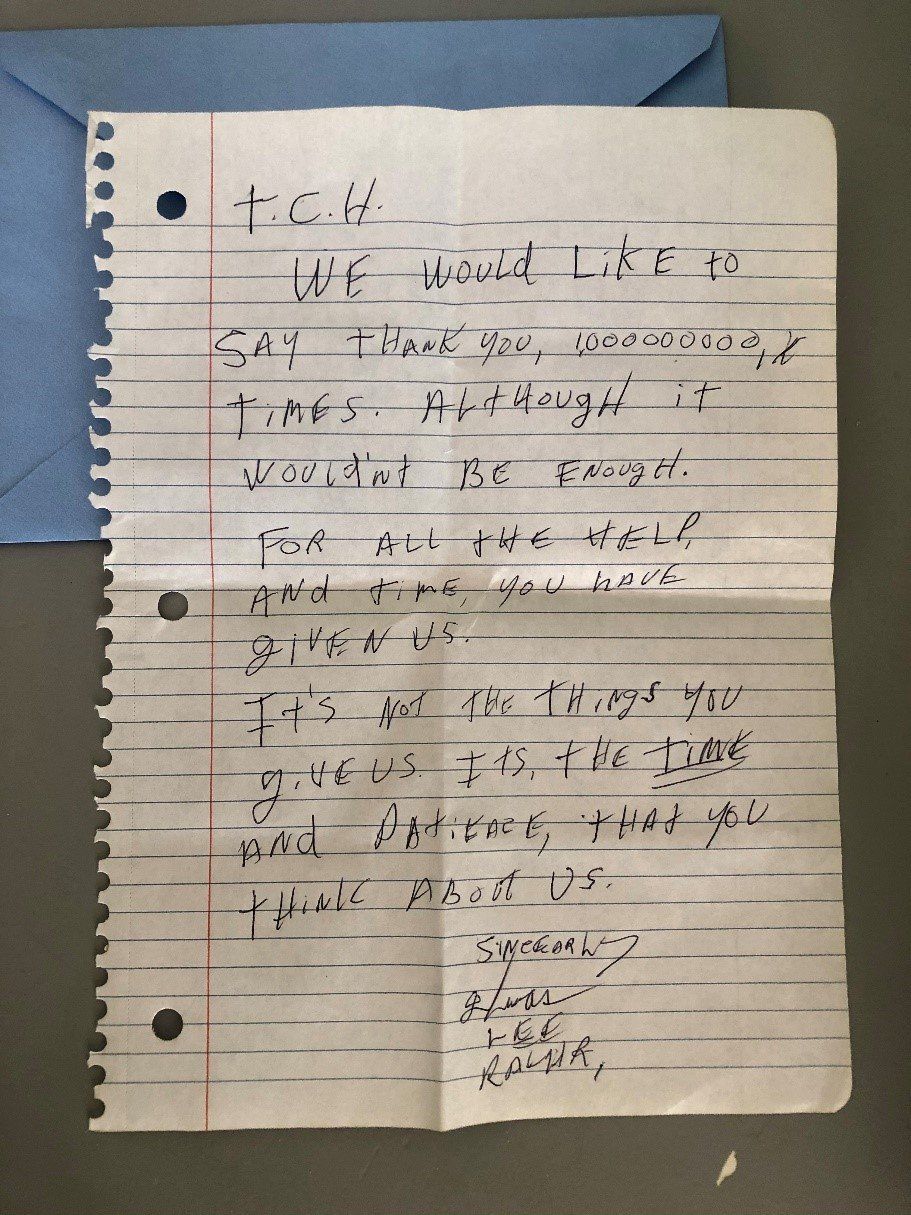 T.C.H.
WE WOULD LIKE to
SAY tHANK YOU, 1,000000000, X
TiMES. ALtHOUgH it
WOULd'Nt BE ENOUgH.
FOR ALL tHE HELP,
ANd tiME, YOU hAVE
giVEN US.
It'S NOt tHE tHiNgS YOU
giVE US. ItS, tHE tiME
ANd PAtiEACE, tHAt YOU
tHiNK ABOUt US.
SiNCEARLY
LEE